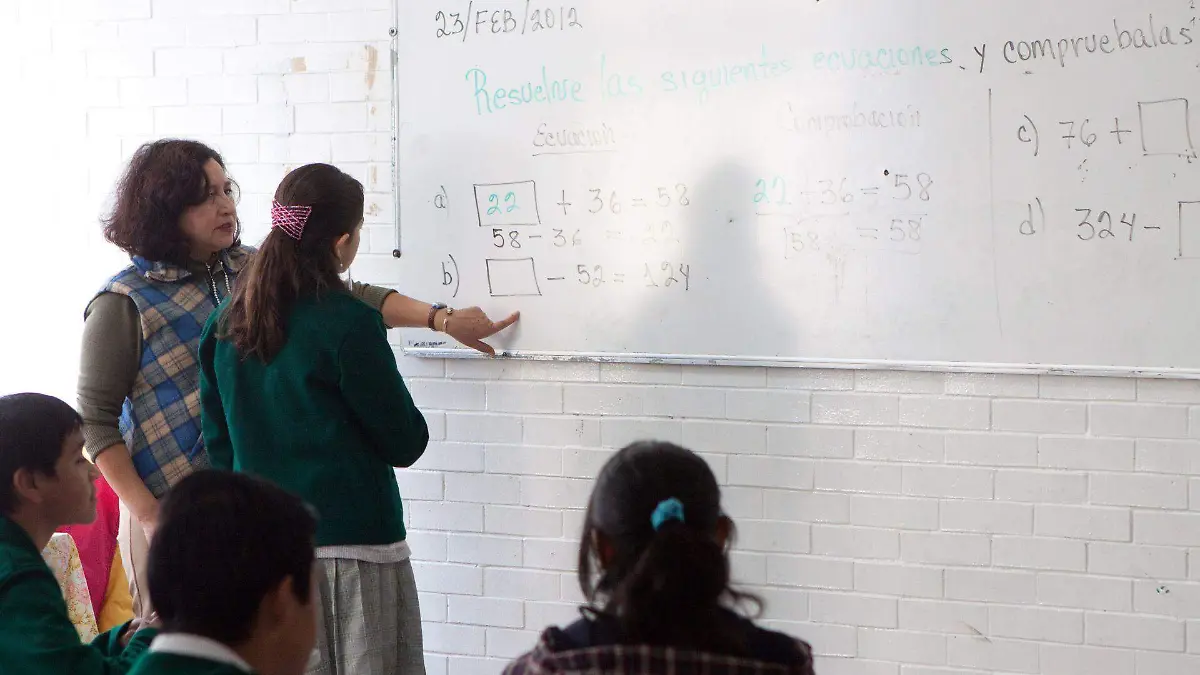 23/FEB/2012
Resuelve las siguientes ecuaciones y compruebalas
Ecuación
Comprobación
a) 22 + 36 = 58
58 - 36 = 22
b) - 52 = 124
22 + 36 = 58
58 = 58
c) 76 +
d) 324 -